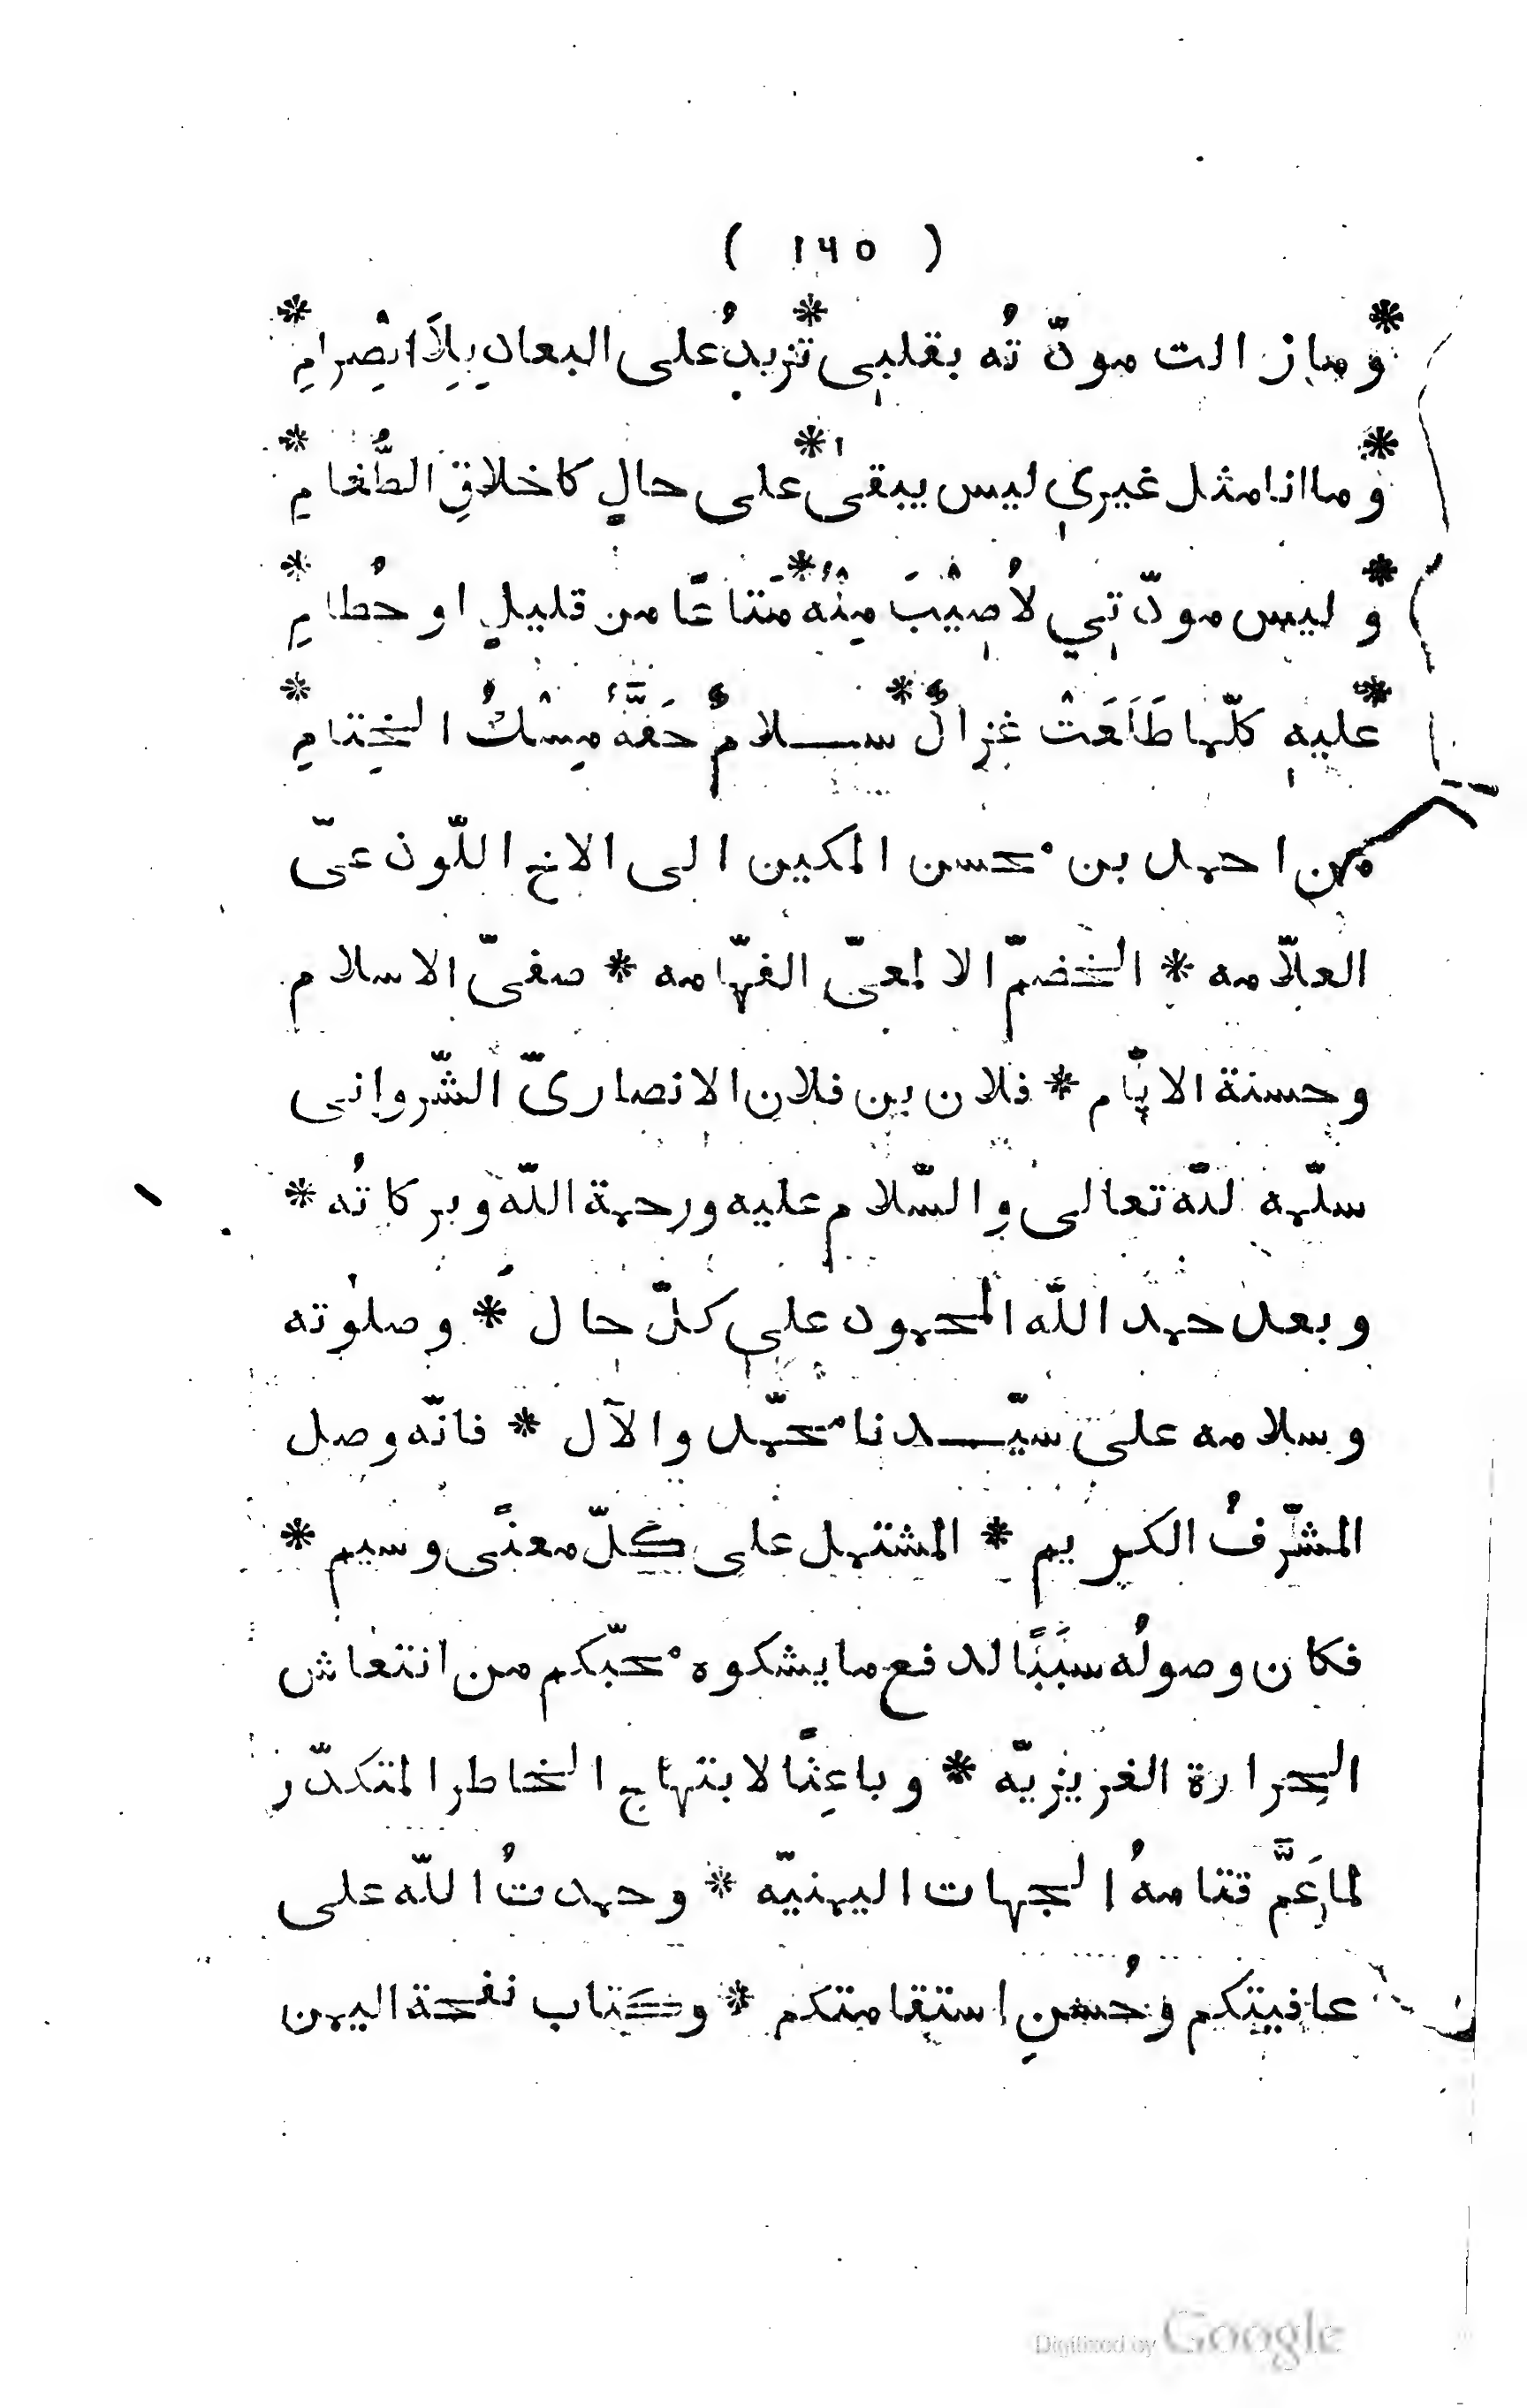 ( ١٦٥ )
* وما زالت مودّتُه بقلبي * تزيدُ على البعادِ بِلَا انْصِرامِ *
* وما انا مثل غيري ليس يبقى * على حالٍ كاخلاقِ الطَّغامِ *
* وليس مودّتي لاُصِيْبَ مِنْهُ * مَتاعًا من قليلٍ او حُطامِ *
* عليهِ كلّما طَلَعَتْ غزالٌ * سلامٌ حَفَّهُ مِسْكُ الخِتامِ *
من احمد بن محسن المكين الى الاخ اللّوذعيّ
العلّامه * الخضمّ الالمعيّ الفهّامه * صفيّ الاسلام
وحسنة الايّام * فلان بن فلان الانصاريّ الشّرواني
سلّمه اللّه تعالى والسّلام عليه ورحمة اللّه وبركاتُه *
وبعد حمد اللّه المحمود على كلّ حال * وصلوته
وسلامه على سيّدنا محمّد والآل * فانّه وصل
المشرّفُ الكريم * المشتمل على كلّ معنًى وسيم *
فكان وصولُه سبَبًا لدفع ما يشكوه محبّكم من انتعاش
الحِرارة الغريزيّه * وباعِثًا لابتهاج الخاطر المتكدّر
لما عَمَّ قتامهُ الجهات اليمنيّه * وحمدتُ اللّه على
عافيتكم وحُسنِ استقامتكم * وكتاب نفحة اليمن
Digitized by Google